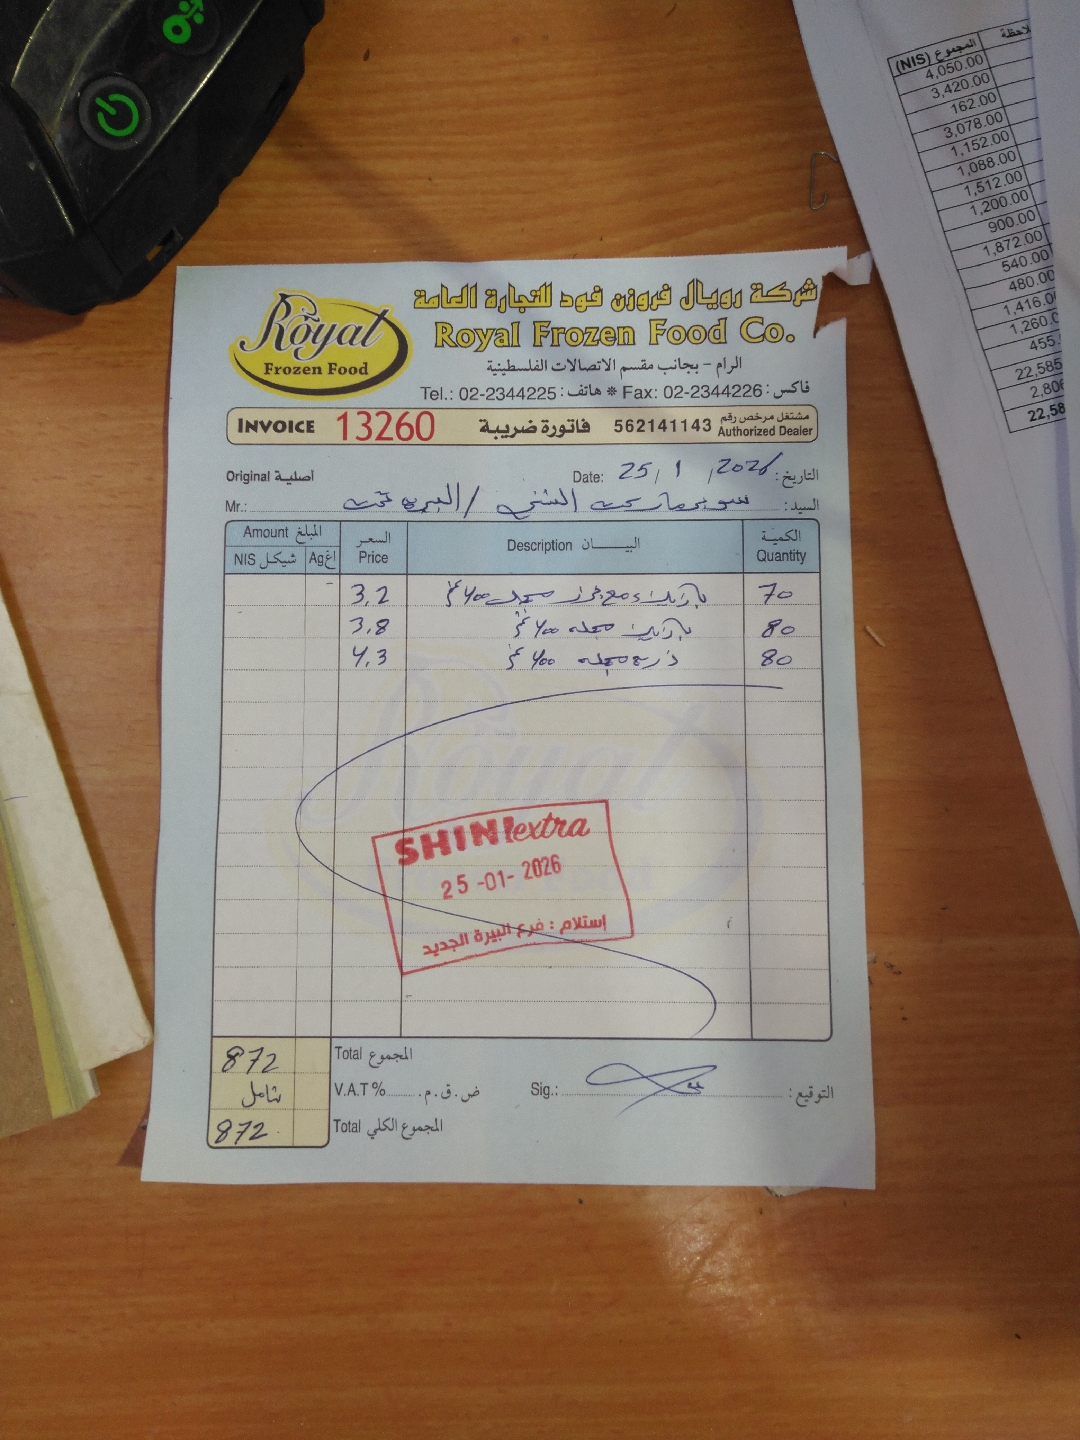 شركة رويال فروزن فود للتجارة العامة
Royal Frozen Food Co.
Royal
Frozen Food
الرام - بجانب مقسم الاتصالات الفلسطينية
Tel.: 02-2344225 : هاتف * Fax: 02-2344226 : فاكس
INVOICE 13260 فاتورة ضريبة 562141143 مشتغل مرخص رقم Authorized Dealer
Original أصلية Date: 25/1/2026 التاريخ:
Mr.: سوبرماركت الشني / البيره السيد:
Amount المبلغ السعر Description البيـــان الكمية
NIS شيكل Ag اغ Price Quantity
3,2 بازيلاء مع جزر مجمد 400 غم 70
3.8 بازيلاء مجمده 400 غم 80
4,3 ذره مجمده 400 غم 80
SHINI extra
25-01-2026
إستلام : فرع البيرة الجديد
872 Total المجموع
شامل V.A.T% ض.ق.م. Sig.: التوقيع:
872 Total المجموع الكلي
المجموع (NIS) ملاحظة
4,050.00
3,420.00
162.00
3,078.00
1,152.00
1,088.00
1,512.00
1,200.00
900.00
1,872.00
540.00
480.00
1,416.0
1,260.0
455.
22,585
2,806
22,58